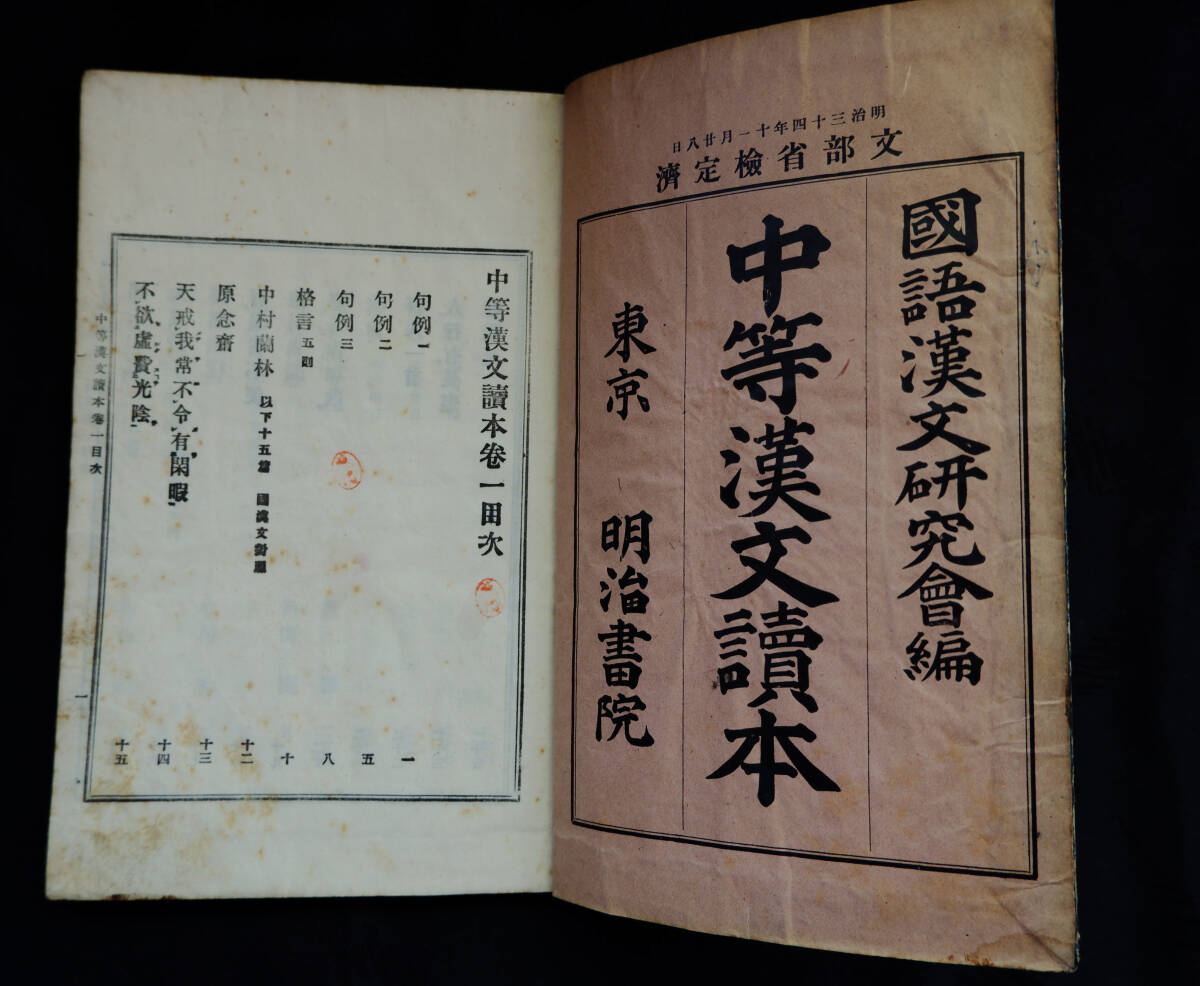 明治三十四年十一月廿八日
文部省檢定濟
國語漢文研究會編
中等漢文讀本
東京 明治書院
中等漢文讀本卷一目次
句例一 一
句例二 五
句例三 八
格言五則 十
中村蘭林 以下十五篇 國漢文對照 十二
原念齋 十三
天戒我常不令有閑暇 十四
不欲虛費光陰 十五
中等漢文讀本卷一目次 一